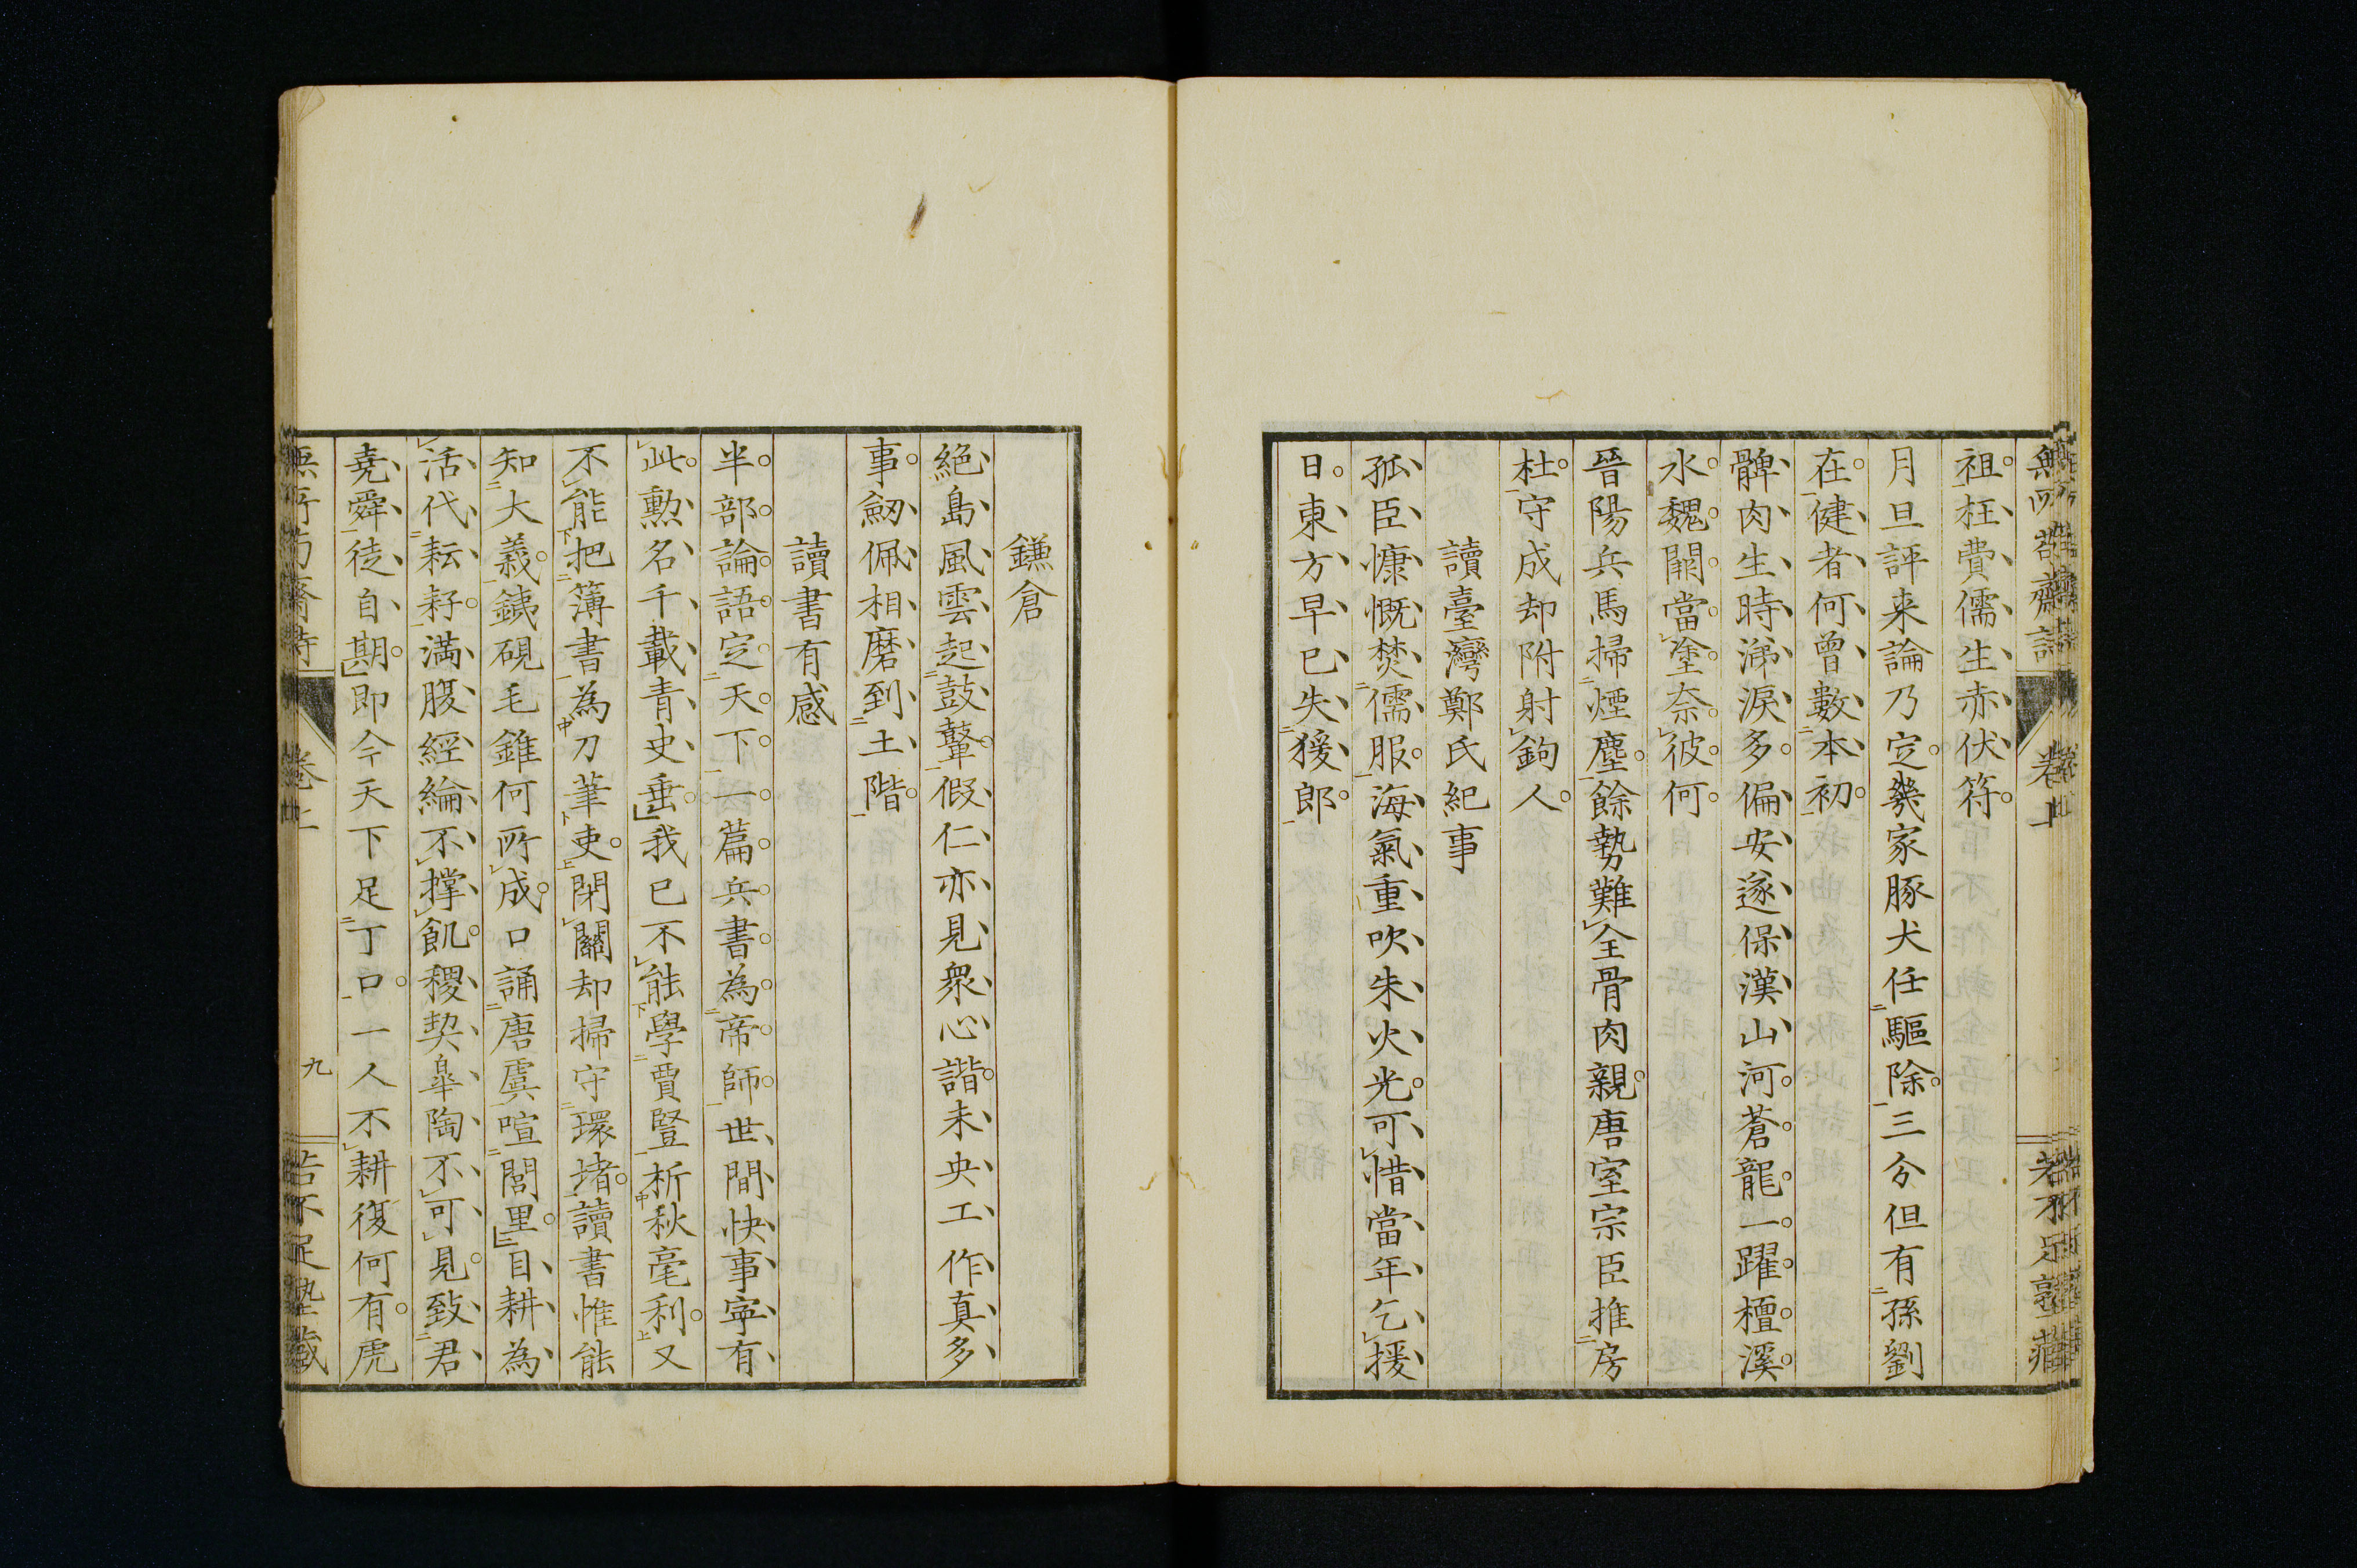 祖枉費儒生赤伏符
月旦評来論乃定幾家豚犬任驅除三分但有孫劉
在健者何曾數本初
髀肉生時涕淚多偏安遂保漢山河蒼龍一躍檀溪
水魏闕當塗奈彼何
晉陽兵馬掃煙塵餘勢難全骨肉親唐室宗臣推房
杜守成却附射鉤人
讀臺灣鄭氏紀事
孤臣慷慨焚儒服海氣重吹朱火光可惜當年乞援
日東方早已失猨郎
鎌倉
絶島風雲起鼓鼙假仁亦見衆心諧未央工作真多
事劒佩相磨到土階
讀書有感
半部論語定天下一篇兵書為帝師世間快事寧有
此勲名千載青史垂我已不能學賈豎析秋毫利又
不能把簿書為刀筆吏閉關却掃守環堵讀書惟能
知大義銕硯毛錐何所成口誦唐虞喧閭里目耕為
活代耘耔満腹經綸不撑飢稷契皐陶不可見致君
堯舜徒自期即今天下足丁口一人不耕復何有虎
卷上
九
若不足塾藏